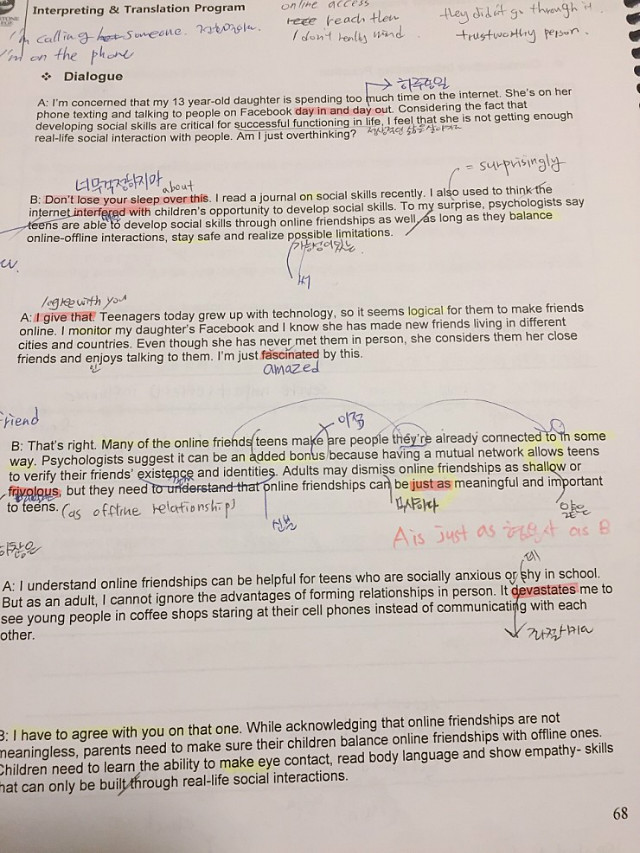 Interpreting & Translation Program
online access
reach them
I don't really mind
they didn't go through it.
trustworthy person.
I'm calling someone.
I'm on the phone
❖ Dialogue
하루종일
A: I'm concerned that my 13 year-old daughter is spending too much time on the internet. She's on her
phone texting and talking to people on Facebook day in and day out. Considering the fact that
developing social skills are critical for successful functioning in life, I feel that she is not getting enough
real-life social interaction with people. Am I just overthinking?
= surprisingly
너무걱정하지마
about
B: Don't lose your sleep over this. I read a journal on social skills recently. I also used to think the
internet interfered with children's opportunity to develop social skills. To my surprise, psychologists say
teens are able to develop social skills through online friendships as well, as long as they balance
online-offline interactions, stay safe and realize possible limitations.
가능성있는
I agree with you
A: I give that. Teenagers today grew up with technology, so it seems logical for them to make friends
online. I monitor my daughter's Facebook and I know she has made new friends living in different
cities and countries. Even though she has never met them in person, she considers them her close
friends and enjoys talking to them. I'm just fascinated by this.
amazed
friend
이쯤
B: That's right. Many of the online friends teens make are people they're already connected to in some
way. Psychologists suggest it can be an added bonus because having a mutual network allows teens
to verify their friends' existence and identities. Adults may dismiss online friendships as shallow or
frivolous, but they need to understand that online friendships can be just as meaningful and important
to teens. (as offline relationship)
신분
묵사하다
얕은
A is just as 형용사 as B
A: I understand online friendships can be helpful for teens who are socially anxious or shy in school.
But as an adult, I cannot ignore the advantages of forming relationships in person. It devastates me to
see young people in coffee shops staring at their cell phones instead of communicating with each
other.
B: I have to agree with you on that one. While acknowledging that online friendships are not
meaningless, parents need to make sure their children balance online friendships with offline ones.
Children need to learn the ability to make eye contact, read body language and show empathy- skills
that can only be built through real-life social interactions.
68